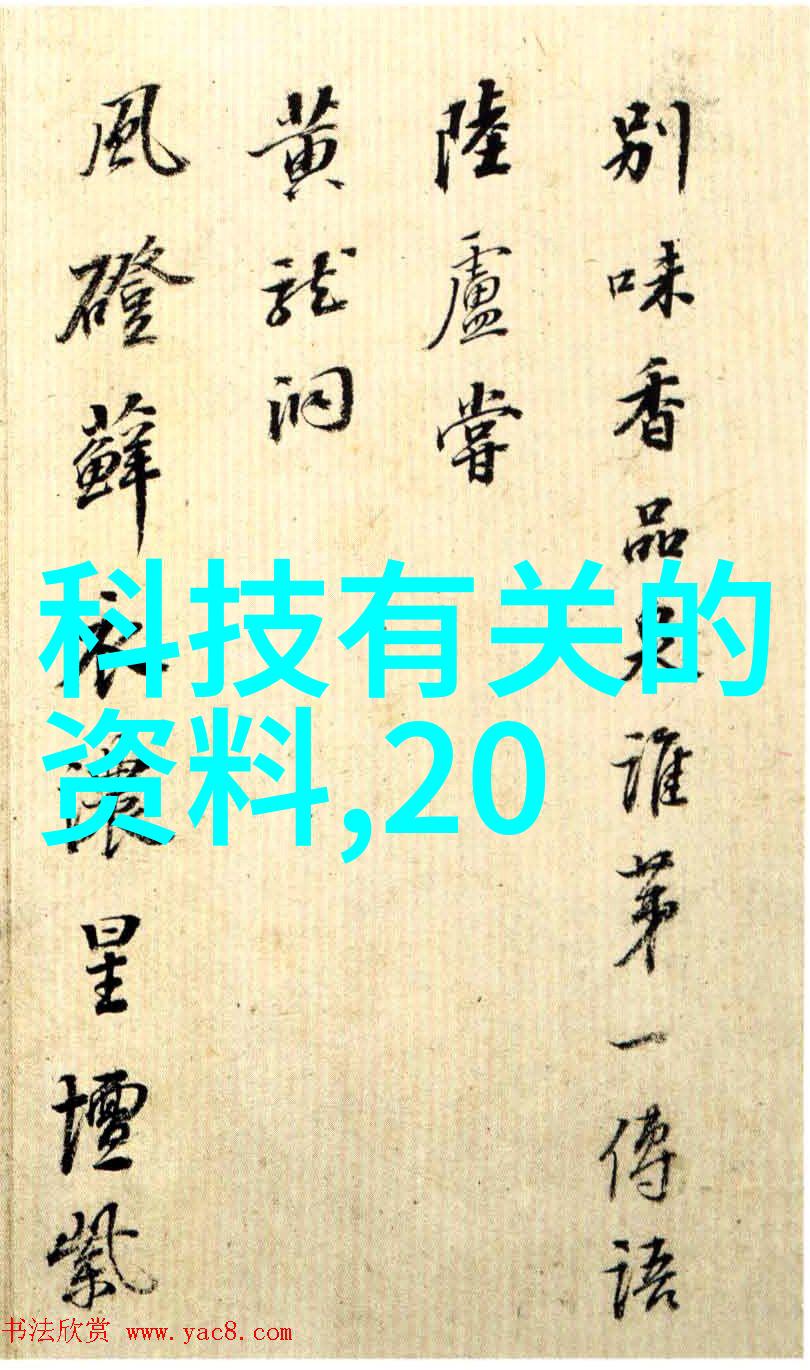 别味香品泉谁苐一傳语
陸盧嘗
黄龍洞
風磴蘚衣濃星壇紫
科技有关的
资料,20
书法欣赏 www.yac8.com